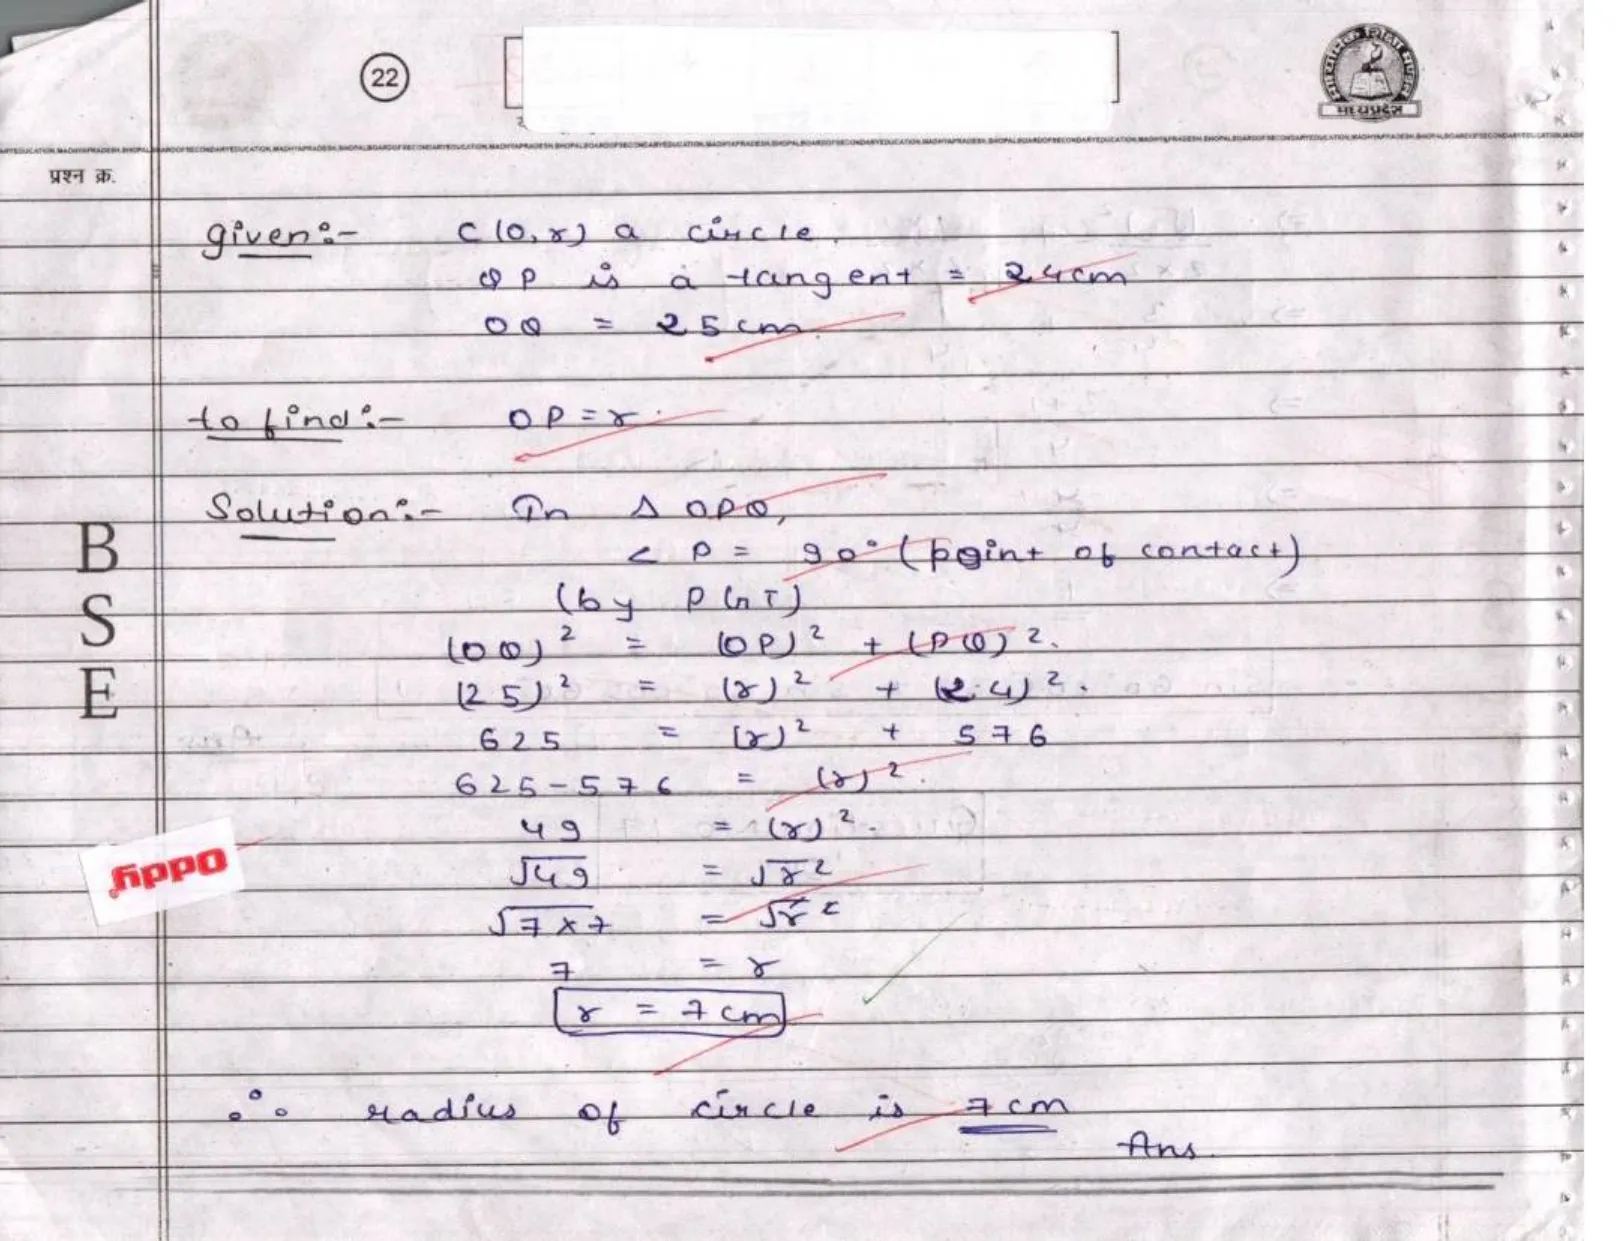 22
मध्यप्रदेश
प्रश्न क्र.
given:- C(O,r) a circle.
QP is a tangent = 24cm
OQ = 25cm.
to find:- OP=r.
Solution:- In Δ OPQ,
< P = 90° (point of contact)
(by PGT)
(OQ)² = (OP)² + (PQ)².
(25)² = (r)² + (24)².
625 = (r)² + 576
625-576 = (r)².
49 = (r)².
√49 = √r²
√7×7 = √r²
7 = r
r = 7cm
∴ radius of circle is 7cm
Ans.
B
S
E